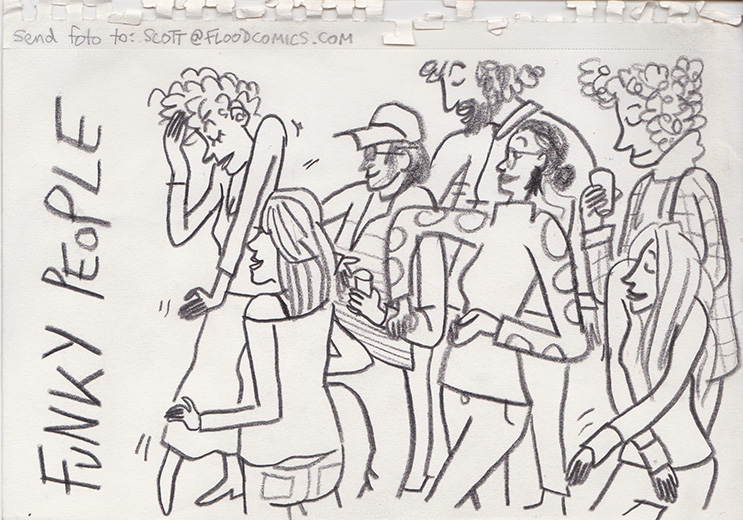 Send foto to: SCOTT@FLOODCOMICS.COM
FUNKY PEOPLE